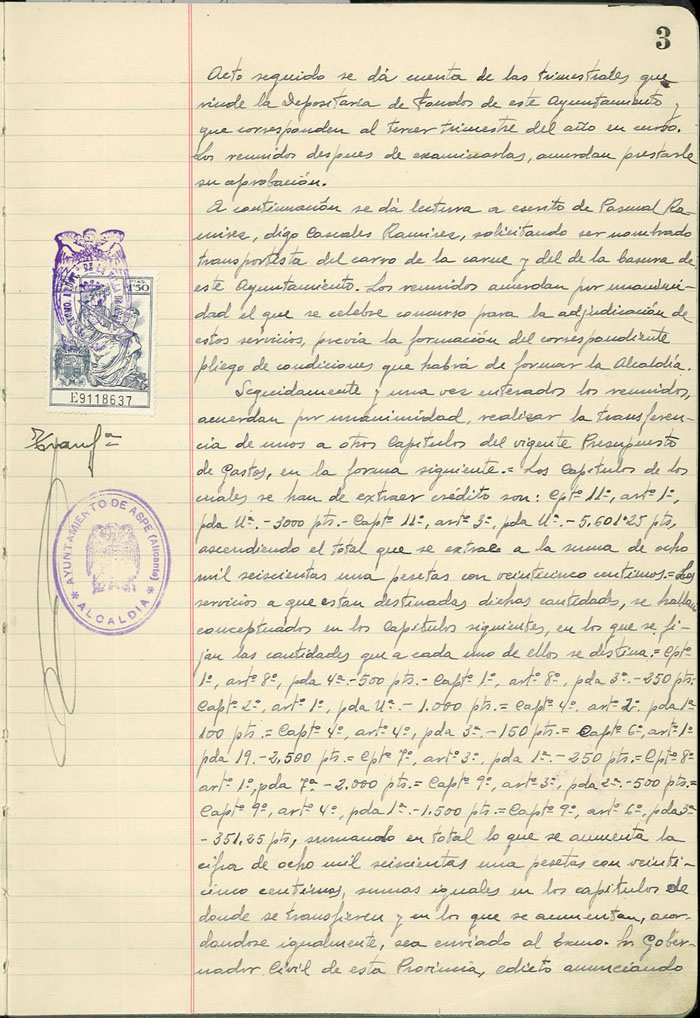 3
Acto seguido se dá cuenta de las trimestrales que
rinde la Depositaria de Fondos de este Ayuntamiento y
que corresponden al tercer trimestre del año en curso.
Los reunidos despues de examinarlas, acuerdan prestarle
su aprobación.
A continuación se dá lectura a escrito de Pascual Ra-
mirez, digo Cascales Ramirez, solicitando ser nombrado
transportista del carro de la carne y del de la basura de
este Ayuntamiento. Los reunidos acuerdan por unanimi-
dad el que se celebre concurso para la adjudicación de
estos servicios, previa la formación del correspondiente
pliego de condiciones que habrá de formar la Alcaldía.
Seguidamente y una vez enterados los reunidos,
acuerdan por unanimidad, realizar la transferen-
cia de unos a otros Capitulos del vigente Presupuesto
de Gastos, en la forma siguiente.= Los Capitulos de los
cuales se han de extraer crédito son: Cptº 11º, artº 1º,
pda Uª.-3000 pts.- Captº 11º, artº 3º, pda Uª.-5,601'25 pts,
ascendiendo el total que se extrae a la suma de ocho
mil seiscientas una pesetas con veinticinco centimos.= Los
servicios a que estan destinadas dichas cantidades, se hallan
conceptuados en los Capitulos siguientes, en los que se fi-
jan las cantidades que a cada uno de ellos se destina.= Cptº
1º, artº 8º, pda 4ª.-500 pts.- Captº 1º, artº 8º, pda 3ª.-250 pts.=
Captº 2º, artº 1º, pda Uª.-1.000 pts.= Captº 4º. artº 2º. pda 1ª
100 pts.= Captº 4º, artº 4º, pda 3ª.-150 pts.= Captº 6º, artº 1º
pda 19.-2,500 pts.= Cptº 7º, artº 3º, pda 1ª.-250 pts.= Cptº 8º
artº 1º, pda 7ª.-2.000 pts.= Captº 9º, artº 3º, pda 2ª.-500 pts.=
Captº 9º, artº 4º, pda 1ª.-1.500 pts.= Captº 9º, artº 6º, pda 3ª
-351.25 pts, sumando en total lo que se aumenta la
cifra de ocho mil seiscientas una pesetas con veinti-
cinco centimos, sumas iguales en los capitulos de
donde se transfieren y en los que se aumentan, acor-
dandose igualmente, sea enviado al Excmo. Sr Gober-
nador Civil de esta Provincia, edicto anunciando
1'50
E9118637
Transfª
AYUNTAMIENTO DE ASPE (Alicante)
* ALCALDIA *